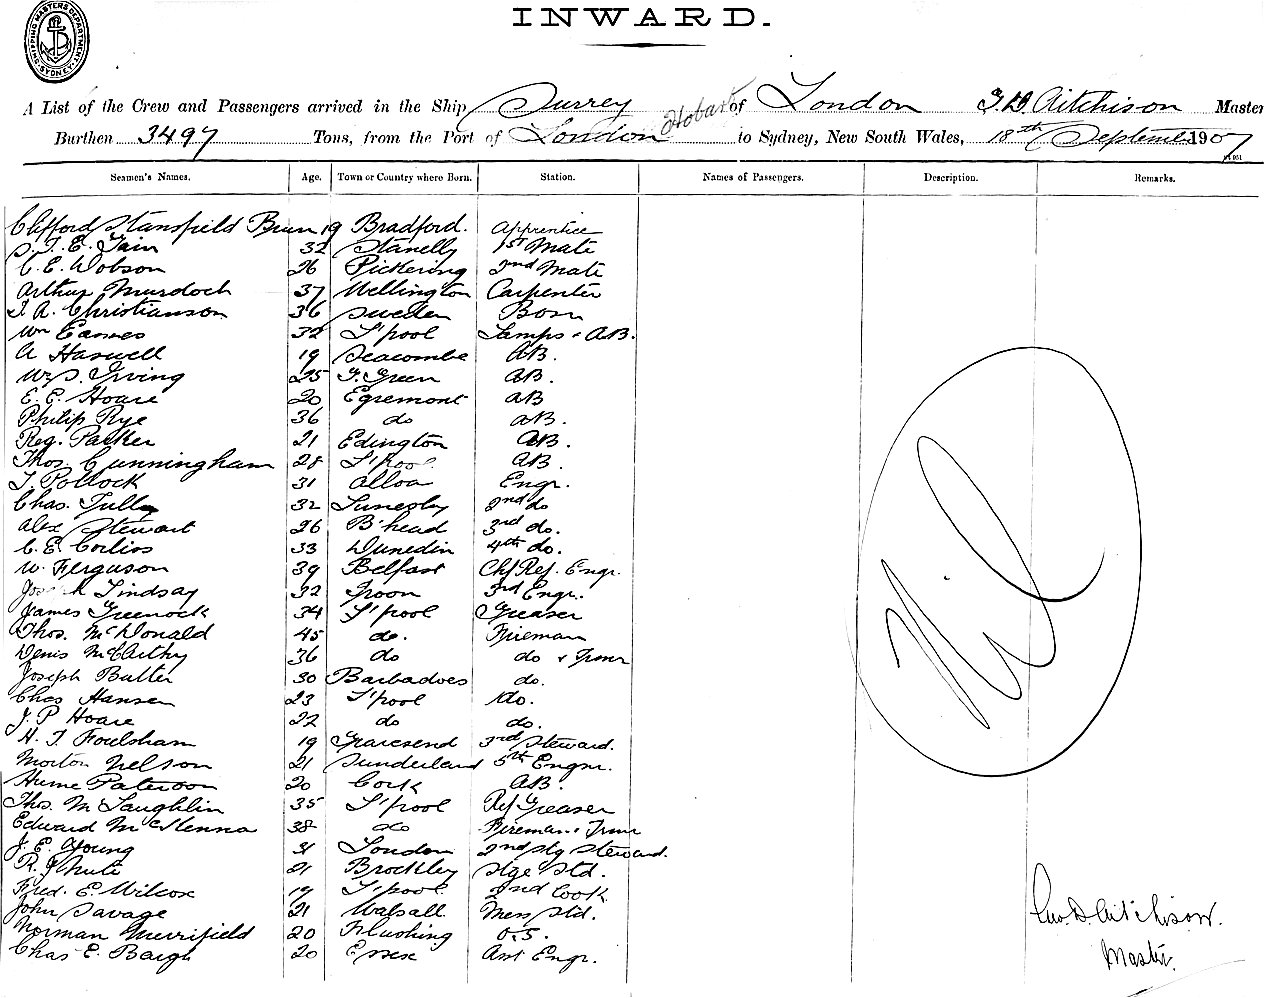 INWARD.
SHIPPING MASTERS DEPARTMENT SYDNEY
A List of the Crew and Passengers arrived in the Ship Surrey of London G. D. Aitchison Master
Hobart
Burthen 3497 Tons, from the Port of London to Sydney, New South Wales, 18th September 1907
Seamen's Names. Age. Town or Country where Born. Station. Names of Passengers. Description. Remarks.
Clifford Stansfield 19 Bradford. Apprentice
32 1st Mate
C. E. Dobson 26 Pickering 2nd Mate
Arthur Murdoch 37 Wellington Carpenter
J. A. Christianson 36 Sweden Bosn
Wm Eames 32 L'pool Lamps & AB.
A Haswell 19 Seacombe AB.
Irving 25 G. Green AB.
E. E. Hoare 20 Egremont AB
Philip Rye 36 do AB.
Reg. Parker 21 Edington AB.
Thos Cunningham 28 L'pool AB.
J. Pollock 31 Alloa Engr.
Chas. Tully 32 2nd do
Alex Stewart 26 B'head 3rd do.
C. E. Corliss 33 Dunedin 4th do.
W. Ferguson 39 Belfast Chf Ref. Engr.
Joseph Lindsay 32 Troon 3rd Engr.
James Greenock 34 L'pool Greaser
Thos. McDonald 45 do. Fireman
Denis McCarthy 36 do do & Trmr
Joseph Butler 30 Barbadoes do.
Chas Hansen 23 L'pool do.
J. P Hoare 22 do do.
H. J. Foulsham 19 Gravesend 3rd Steward.
Morton Nelson 21 Sunderland 5th Engnr.
Hume Paterson 20 Cork AB.
Thos. McLaughlin 35 L'pool Ref Greaser
Edward McKenna 38 do Fireman & Trmr
J. E. Young 31 London 2nd Stg Steward.
R. 21 Brockley Stge Std.
Fred. E. Wilcox 19 L'pool 2nd Cook
John Savage 21 Walsall Mess Std.
Norman Merrifield 20 Flushing O.S.
Chas E. Baigh 20 Essex Asst Engr.
Nil
Geo. D. Aitchison.
Master.